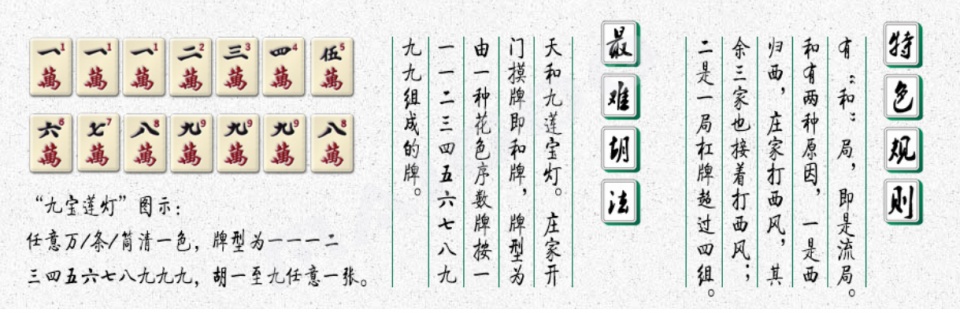 特色规则
有“和”局，即是流局。
和有两种原因，一是西
归西，庄家打西风，其
余三家也接着打西风；
二是一局杠牌超过四组。
最难胡法
天和九莲宝灯。庄家开
门摸牌即和牌，牌型为
由一种花色序数牌按一
一一二三四五六七八九
九九组成的牌。
一1 一1 一1 二2 三3 四4 伍5
萬 萬 萬 萬 萬 萬 萬
六6 七7 八8 九9 九9 九9 八8
萬 萬 萬 萬 萬 萬 萬
“九宝莲灯”图示：
任意万/条/筒清一色，牌型为一一一二
三四五六七八九九九，胡一至九任意一张。